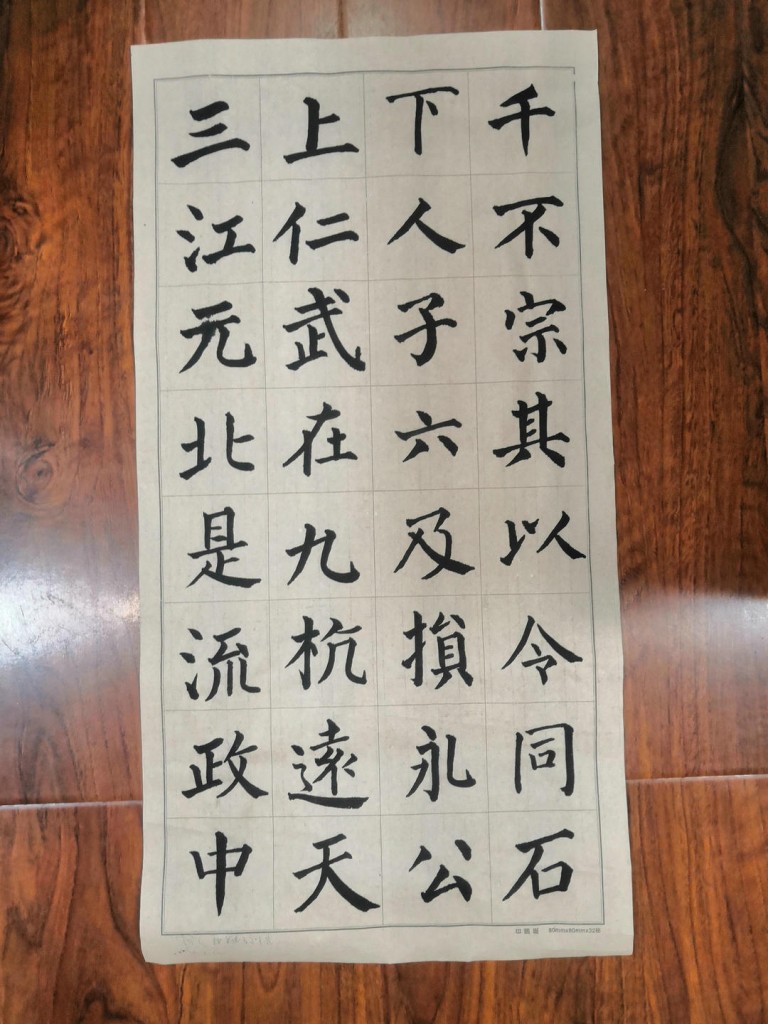 千不宗其以令同石
下人子六及損永公
上仁武在九杭遠天
三江元北是流政中